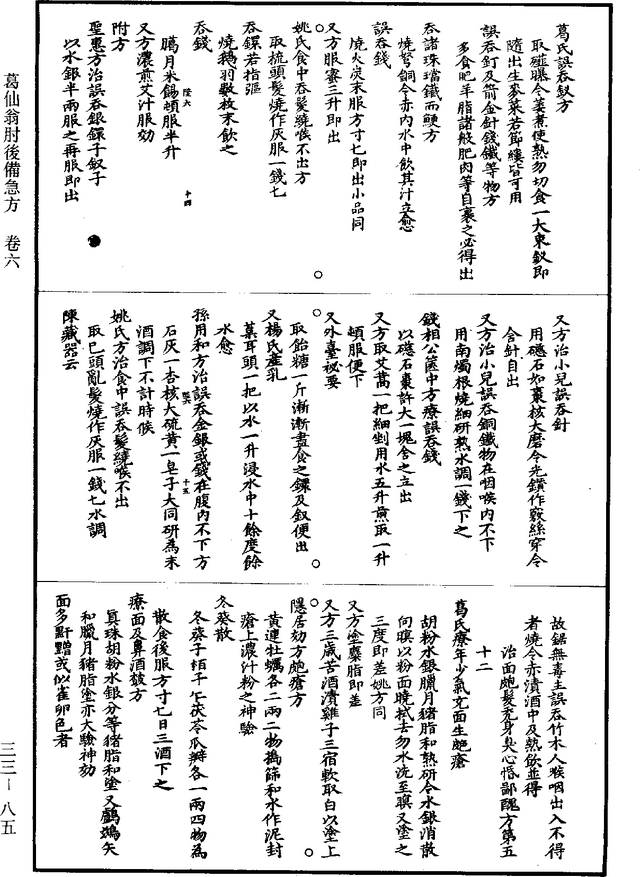 葛氏誤吞釵方
取䪥曝令萎煮使熟勿切食一大束釵即
隨出生麥菜若節縷皆可用
誤吞釘及箭金針錢鐵等物方
多食肥羊脂諸般肥肉等自裹之必得出
吞諸珠璫鐵而鯁方
燒弩銅令赤內水中飲其汁立愈
誤吞錢
燒火炭末服方寸匕即出小品同
又方服蜜三升即出
姚氏食中吞髮繞喉不出方
取梳頭髮燒作灰服一錢匕
吞鐶若指彄
燒鵝羽數枚末飲之
吞錢
臈月米餳頓服半升
陸六 十四
又方濃煎艾汁服効
附方
聖惠方治誤吞銀鐶子釵子
以水銀半兩服之再服即出
又方治小兒誤吞針
用礠石如棗核大磨令光鑽作竅絲穿令
含針自出
又方治小兒誤吞銅鐵物在咽喉內不下
用南燭根燒細研熟水調一錢下之
錢相公篋中方療誤吞錢
以礠石棗許大一塊含之立出
又方取艾蒿一把細剉用水五升煎取一升
頓服便下
又外臺秘要
取飴糖一斤漸漸盡食之鐶及釵便出
又楊氏產乳
葈耳頭一把以水一升浸水中十餘度餘
水愈
孫用和方治誤吞金銀或錢在腹內不下方
十五
石灰一杏核大硫黃一皂子大同研為末
酒調下不計時候
姚氏方治食中誤吞髮繞喉不出
取已頭亂髮燒作灰服一錢匕水調
陳藏器云
故鋸無毒主誤吞竹木入喉咽出入不得
者燒令赤漬酒中及熱飲並得
治面皰髮禿身臭心惛鄙醜方第五
十二
葛氏療年少氣充面生皰瘡
胡粉水銀臘月豬脂和熟研令水銀消散
向暝以粉面曉拭去勿水洗至暝又塗之
三度即差姚方同
又方塗麋脂即差
又方三歲苦酒漬雞子三宿軟取白以塗上
隱居効方皰瘡方
黃連牡蠣各二兩二物搗篩和水作泥封
瘡上濃汁粉之神驗
冬葵散
冬葵子栢子仁茯苓瓜瓣各一兩四物為
散食後服方寸匕日三酒下之
療面及鼻酒皶方
真珠胡粉水銀分等豬脂和塗又鸕鶿矢
和臘月豬脂塗亦大驗神効
面多䵟䵳或似雀卵色者
葛仙翁肘後備急方 卷六
三三一八五